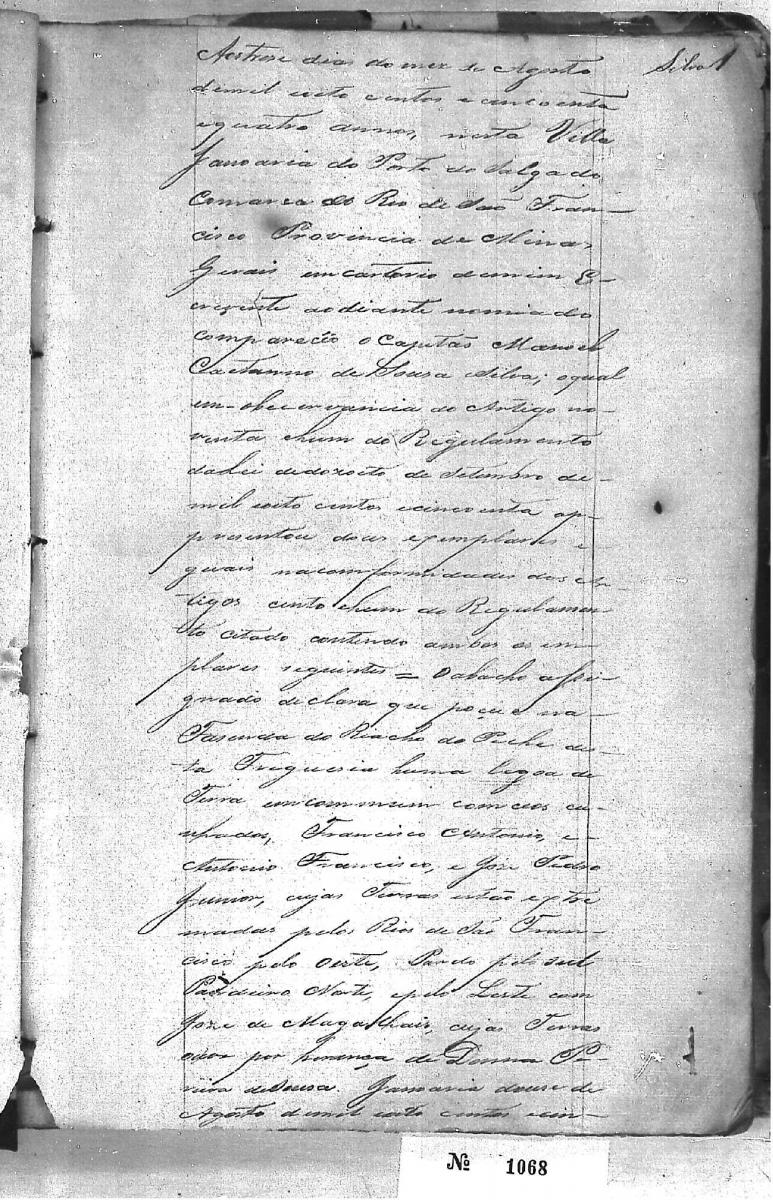 Aos treze dias do mez de Agosto
Silva 1
de mil oito centos e cincoenta
e quatro annos, nesta Villa
Januaria do Porto do Salgado
Comarca do Rio de São Fran-
cisco Provincia de Minas
Gerais em cartorio de mim Es-
crevente ao diante nomiado
compareceo o Capitão Manoel
Caetanno de Souza Silva; o qual
em obecervancia do Artigo no-
venta e hum do Regulamento
da Lei de dezoito de Setembro de
mil oito centos e cincoenta ap-
presentou dous exemplares e-
guais na comformidades dos Ar-
tigos cento e hum do Regulamen-
to citado contendo ambos os em-
plares seguintes = O abacho assi-
gnado declara que poçue na
Fazenda do Riacho do Peche des-
ta Freguesia huma legoa de
Terra em commum com os
Francisco Antonio, e
Antonio Francisco, e Joze Pedro
Junior, cujas Terras estão extre
madas pelos Rios de São Fran-
cisco pelo Oeste, Pardo pelo sul
Norte, e pelo Leste com
Joze de Magalhais, cujas Terras
por herança de Donna
de Souza. Januaria douse de
Agosto de mil oito centos e cin-
1
Nº 1068